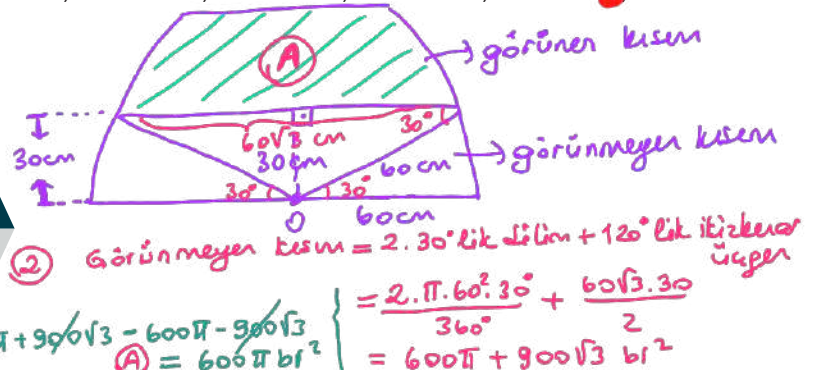 A
→ görünen kısım
30cm
60√3 cm
30°
30cm
60cm
→ görünmeyen kısım
30°
30°
O
60cm
② Görünmeyen kısım = 2.30°lik dilim + 120°lik ikizkenar
üçgen
π + 900√3 - 600π - 900√3
= 2.π.60².30° / 360° + 60√3.30 / 2
A = 600π br²
= 600π + 900√3 br²